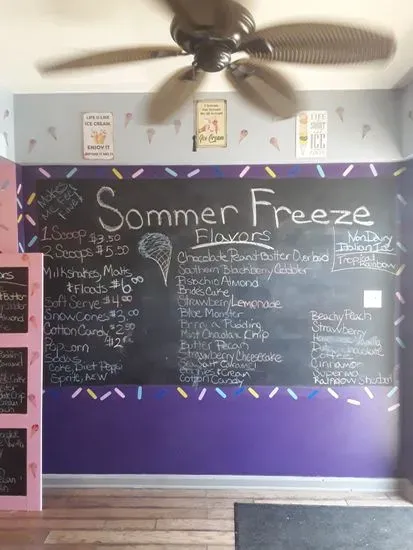 LIFE IS LIKE
ICE CREAM
ENJOY IT
BEFORE IT MELTS
ICE
Sommer Freeze
Flavors
1 Scoop $3.50
2 Scoops $5.50
Milkshakes, Malts
& Floads $6.00
Soft Serve $4.00
Snow Cones $3.00
Cotton Candy $2.50
Popcorn
Sodas
Coke, Diet Pepsi
Sprite, A&W
Chocolate Peanut Butter Overload
Southern Blackberry Cobbler
Pistachio Almond
Brides Cake
Strawberry Lemonade
Blue Monster
Banana Pudding
Mint Chocolate Chip
Butter Pecan
Strawberry Cheesecake
Salt Caramel
Cookies & Cream
Cotton Candy
Non Dairy
Italian Ice
Tropical
Rainbow
Beachy Peach
Strawberry
Homemade Vanilla
Chocolate
Coffee
Cinnamon
Superman
Rainbow Sherbert